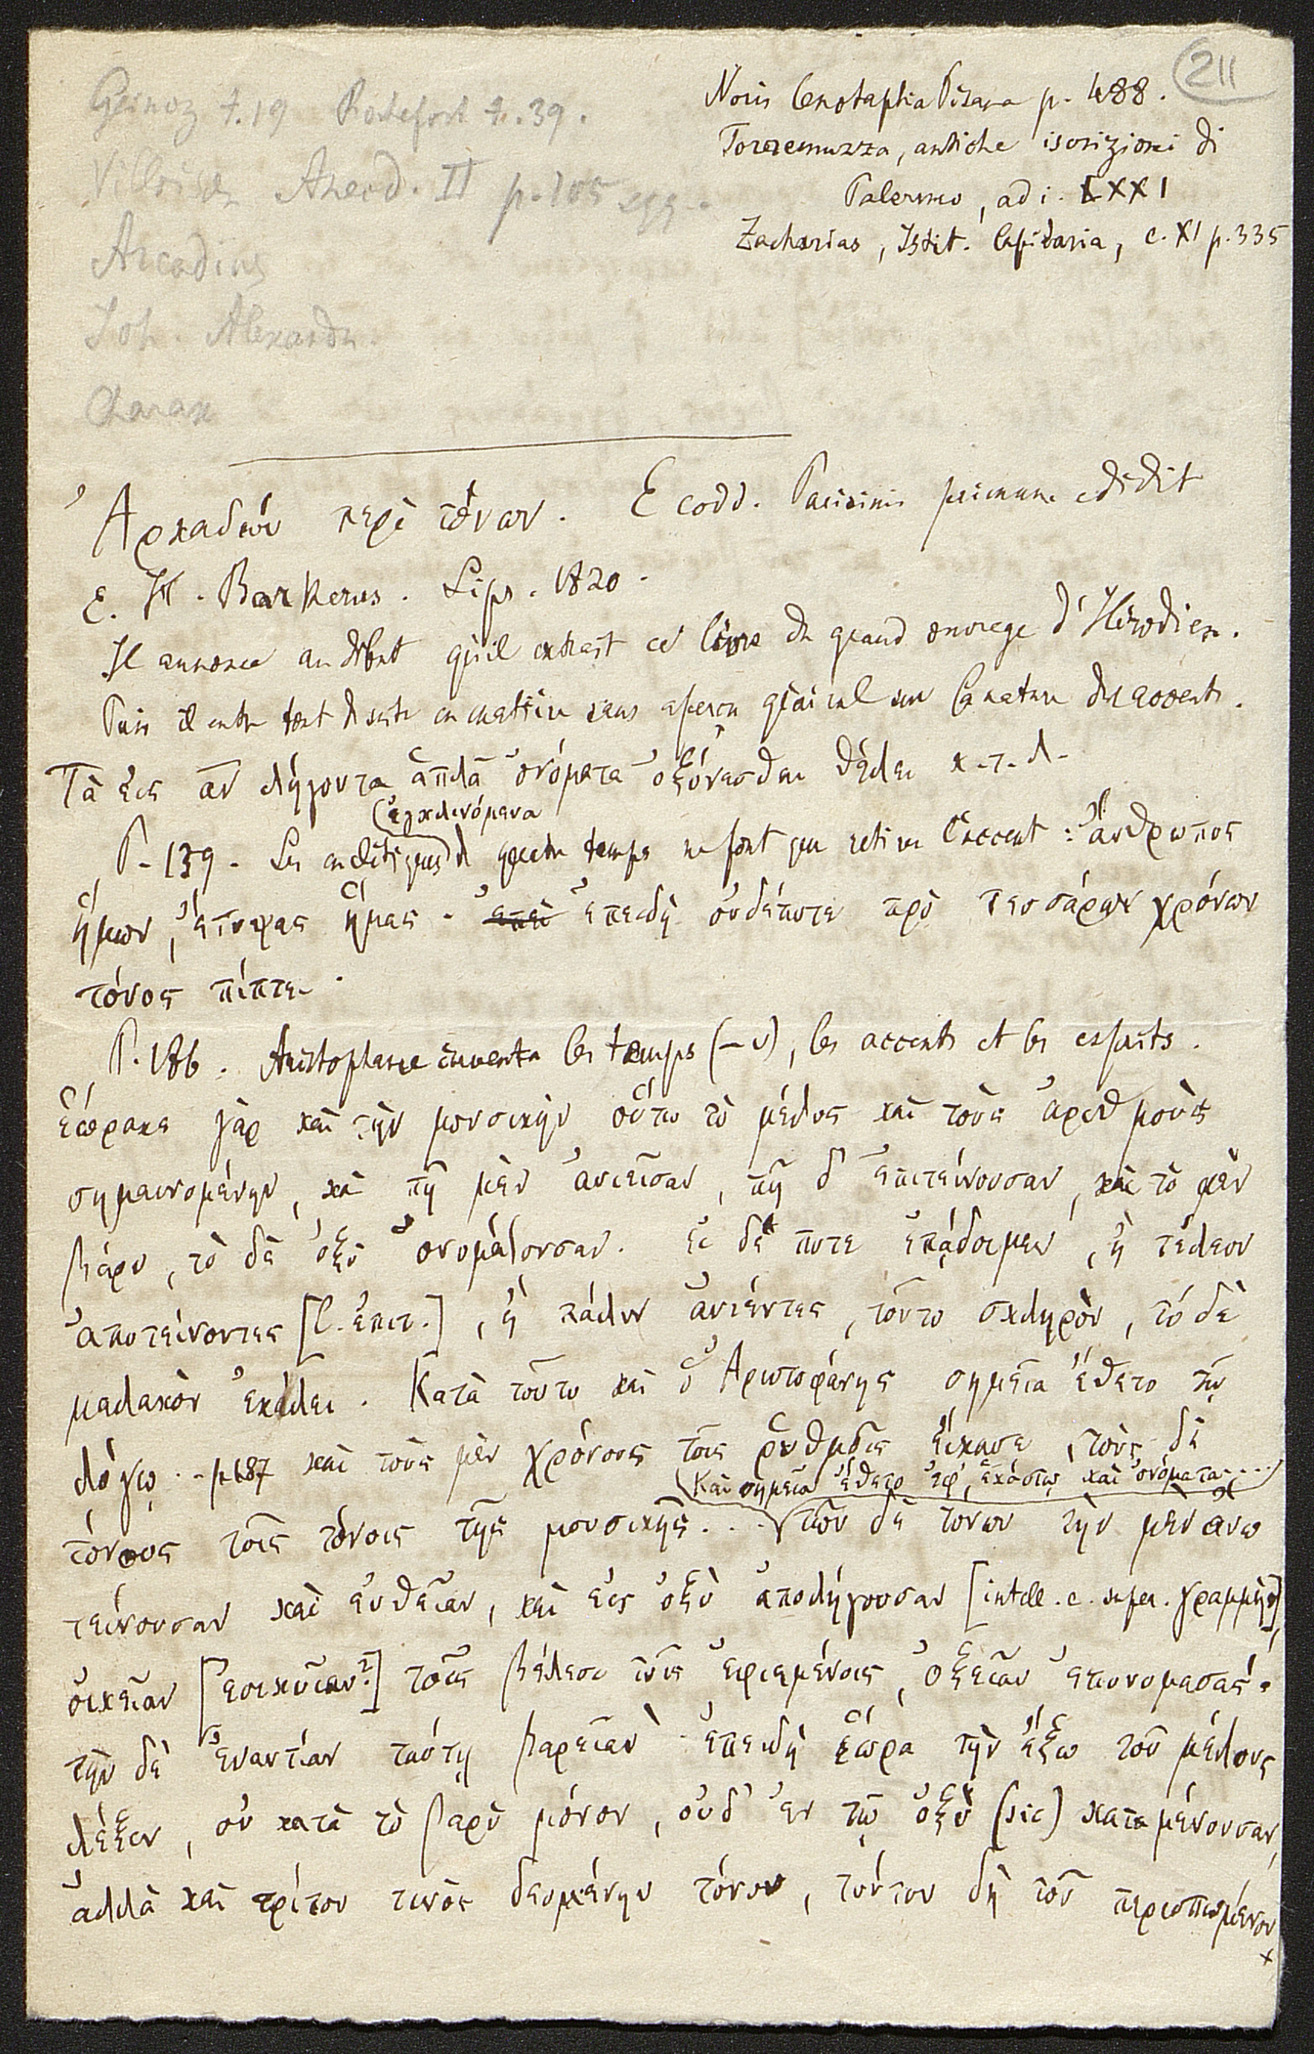 211
Geinoz t. 19 Rochefort t. 39.
Villoison Anecd. II p. 105 sqq.
Arcadius
Joh. Alexandr.
Charax
Noris Cenotaphia Pisana p. 488.
Torremuzza, antiche iscrizioni di
Palermo, ad i. LXXI
Zacharias, Istit. lapidaria, c. XI p. 335
Ἀρκαδίου περὶ τόνων. E codd. Parisinis primum edidit
E. H. Barkerus. Lips. 1820.
Il annonce au début qu'il extrait ce livre du grand ouvrage d'Hérodien.
Puis il entre tout de suite en matière sans aperçu général sur la nature des accents.
Τὰ εἰς αν λήγοντα ἁπλᾶ ὀνόματα ὀξύνεσθαι θέλει κ.τ.λ.
(ἐγκλινόμενα
P. 139. Les enclitiques) de quatre temps ne font pas retirer l'accent: ἄνθρωπος
ἥμων, ἔτυχες ἥμας. ἐπεὶ ἐπειδὴ οὐδέποτε πρὸ τεσσάρων χρόνων
τόνος πίπτει.
P. 186. Aristophane inventa les temps (– ∪), les accents et les esprits.
Ἑώρακε γὰρ καὶ τὴν μουσικὴν οὕτω τὸ μέλος καὶ τοὺς ἀριθμοὺς
σημαινομένην, καὶ πῆ μὲν ἀνιεῖσαν, πῆ δ' ἐπιτείνουσαν, καὶ τὸ μὲν
βάρυ, τὸ δὲ ὀξὺ ὀνομάζουσαν. Εἰ δέ ποτε ἐπᾴδοιμεν, ἢ τέλεον
ἀποτείνοντες [l. ἐπιτ.], ἢ πάλιν ἀνιέντες, τοῦτο σκληρὸν, τό δὲ
μαλακὸν ἐκάλει. Κατὰ τοῦτο καὶ ὁ Ἀριστοφάνης σημεῖα ἔθετο τῷ
λόγῳ .- p. 187 καὶ τοὺς μὲν χρόνους τοῖς ῥυθμοῖς εἴκασε, τοὺς δὲ
(Καὶ σημεῖα ἔθετο ἐφ' ἑκάστῳ καὶ ὀνόματα...)
τόνους τοῖς τόνοις τῆς μουσικῆς... τῶν δὲ τόνων τὴν μὲν ἄνω
τείνουσαν καὶ εὐθεῖαν, καὶ εἰς ὀξὺ ἀπολήγουσαν [intell. e. super. γραμμήν],
οἰκεῖαν [ἐοικυῖαν?] τοῖς βέλεσι τοῖς ἐφιεμένοις, ὀξεῖαν ἐπονομασάς.
τὴν δὲ ἐναντίαν ταύτῃ βαρεῖαν· ἐπειδὴ ἑώρα τὴν ἔξω τοῦ μέλους
λέξιν, οὐ κατὰ τὸ βαρὺ μόνον, οὐδ' ἐν τῷ ὀξὺ (sic) καταμένουσαν,
ἀλλὰ καὶ τρίτου τινὸς δεομένην τόνου, τούτου δὴ τοῦ περισπωμένου
×